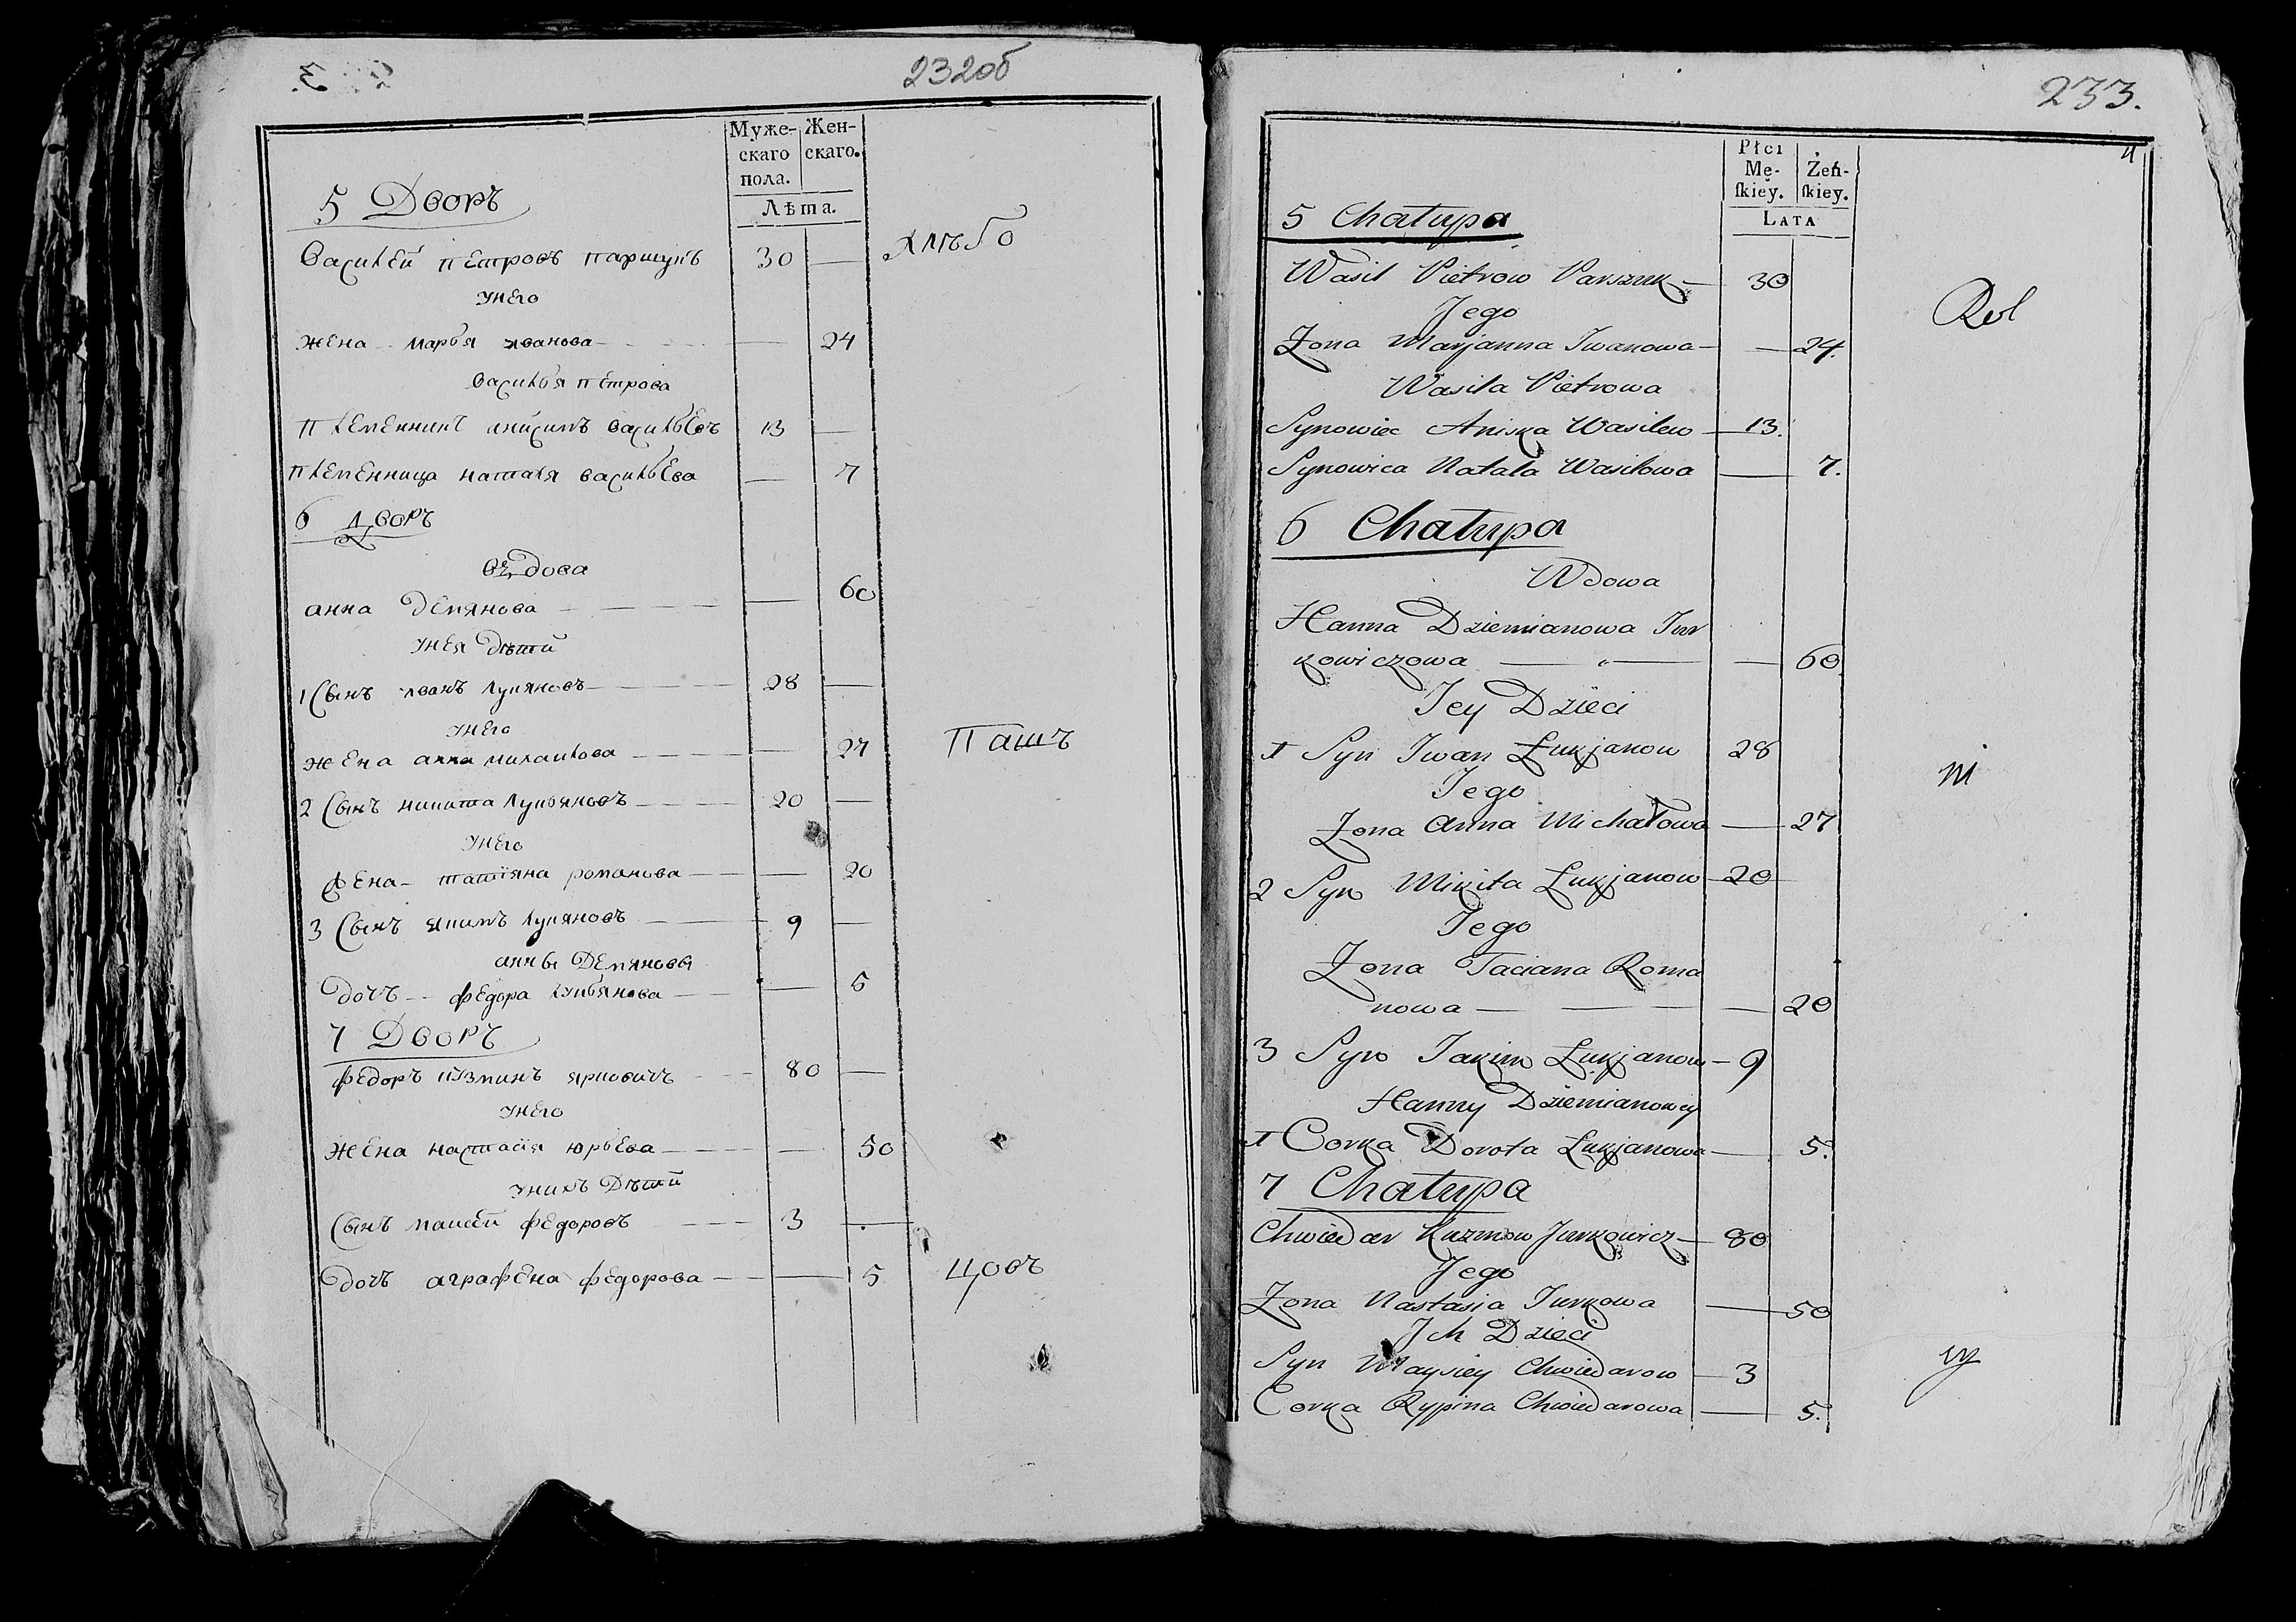 232об
Муже-
скаго
пола.
Жен-
скаго.
Лѣта.
5 Дворъ
Василей Петровъ Паршукъ 30 —
унего
жена марья иванова — 24
василья петрова
племенникъ анисимъ васильевъ 13 —
племенница наталя васильева — 7
6 дворъ
вдова
анна демянова — 60
унея дѣти
1 Сынъ иванъ лукяновъ 28 —
унего
жена анна михаилова — 27
2 Сынъ никита лукьяновъ 20 —
унего
жена татияна романова — 20
3 Сынъ якимъ лукяновъ 9 —
анны Демяновы
дочъ федора лукьянова — 5
7 Дворъ
федоръ кузминъ 80 —
унего
жена настасия юрьева — 50
унихъ Дѣти
Сынъ федоровъ 3 —
дочъ аграфена федорова — 5
хлѣбо
Пашъ
цовъ
233.
Płci
Mę-
skiey.
Żeń-
skiey.
LATA
5 Chałupa
Wasil Pietrow Parszuk — 30
Jego
Żona Marjanna Iwanowa — 24.
Wasila Pietrowa
Synowiec Aniska Wasilew — 13.
Synowica Natala Wasilowa — 7.
6 Chałupa
Wdowa
Hanna Dziemianowa Jur
kowiczowa — 60
Jey Dzieci
1 Syn Iwan Łukjanow 28
Jego
Żona Anna Michałowa — 27
2 Syn Mikita Łukjanow — 20
Jego
Żona Taciana Roma
nowa — 20
3 Syn Jakim Łukjanow — 9
Hanny Dziemianowey
1 Corka Dorota Łukjanowa — 5.
7 Chałupa
Chwiedar Kuzmow Jurkowicz — 80
Jego
Żona Nastasia Jurkowa — 50
Jch Dzieci
Syn Maysiey Chwiedarow — 3
Corka Rypina Chwiedarowa — 5.
Rol
ni
cy